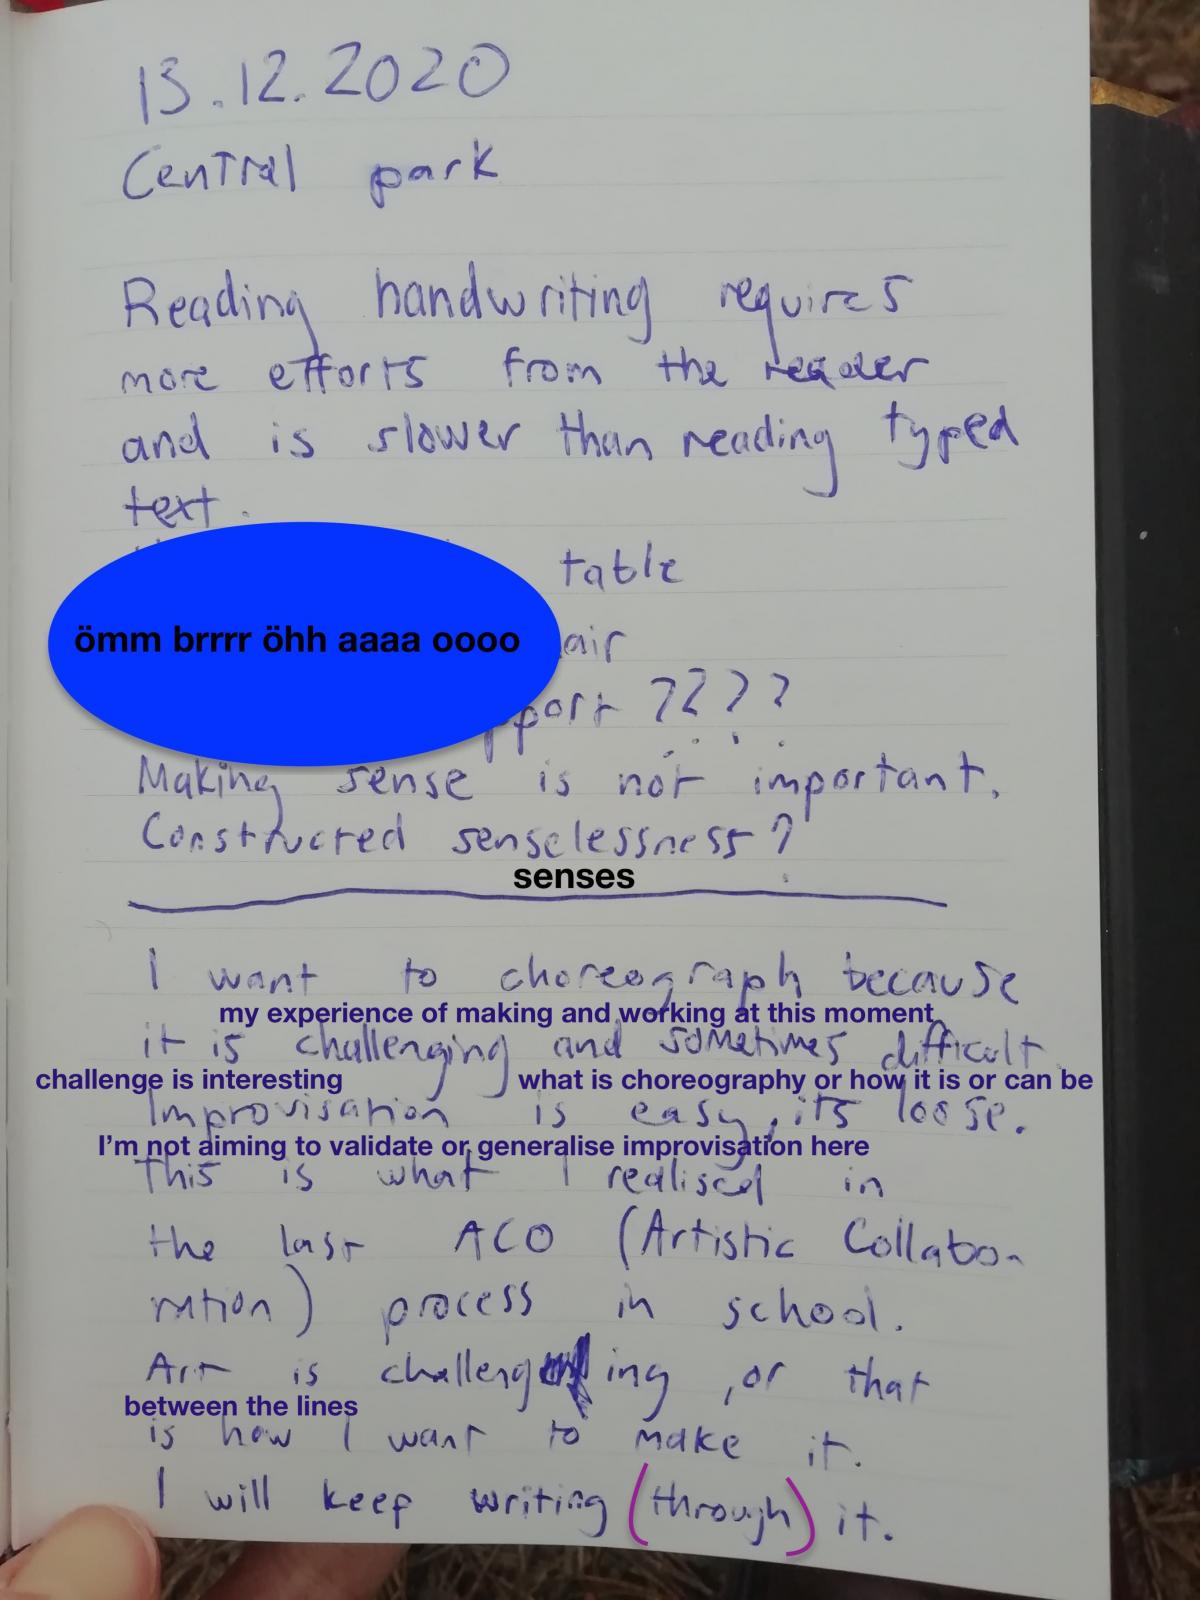 13.12.2020
Central park
Reading handwriting requires
more efforts from the reader
and is slower than reading typed
text.
table
ömm brrrr öhh aaaa oooo
air
pport ????
Making sense is not important.
Constructed senselessness?
senses
I want to choreograph because
my experience of making and working at this moment
it is challenging and sometimes difficult
challenge is interesting what is choreography or how it is or can be
Improvisation is easy, its loose.
I'm not aiming to validate or generalise improvisation here
This is what I realised in
the last ACO (Artistic Collabo-
ration) process in school.
Art is challenging, or that
between the lines
is how I want to make it.
I will keep writing (through) it.